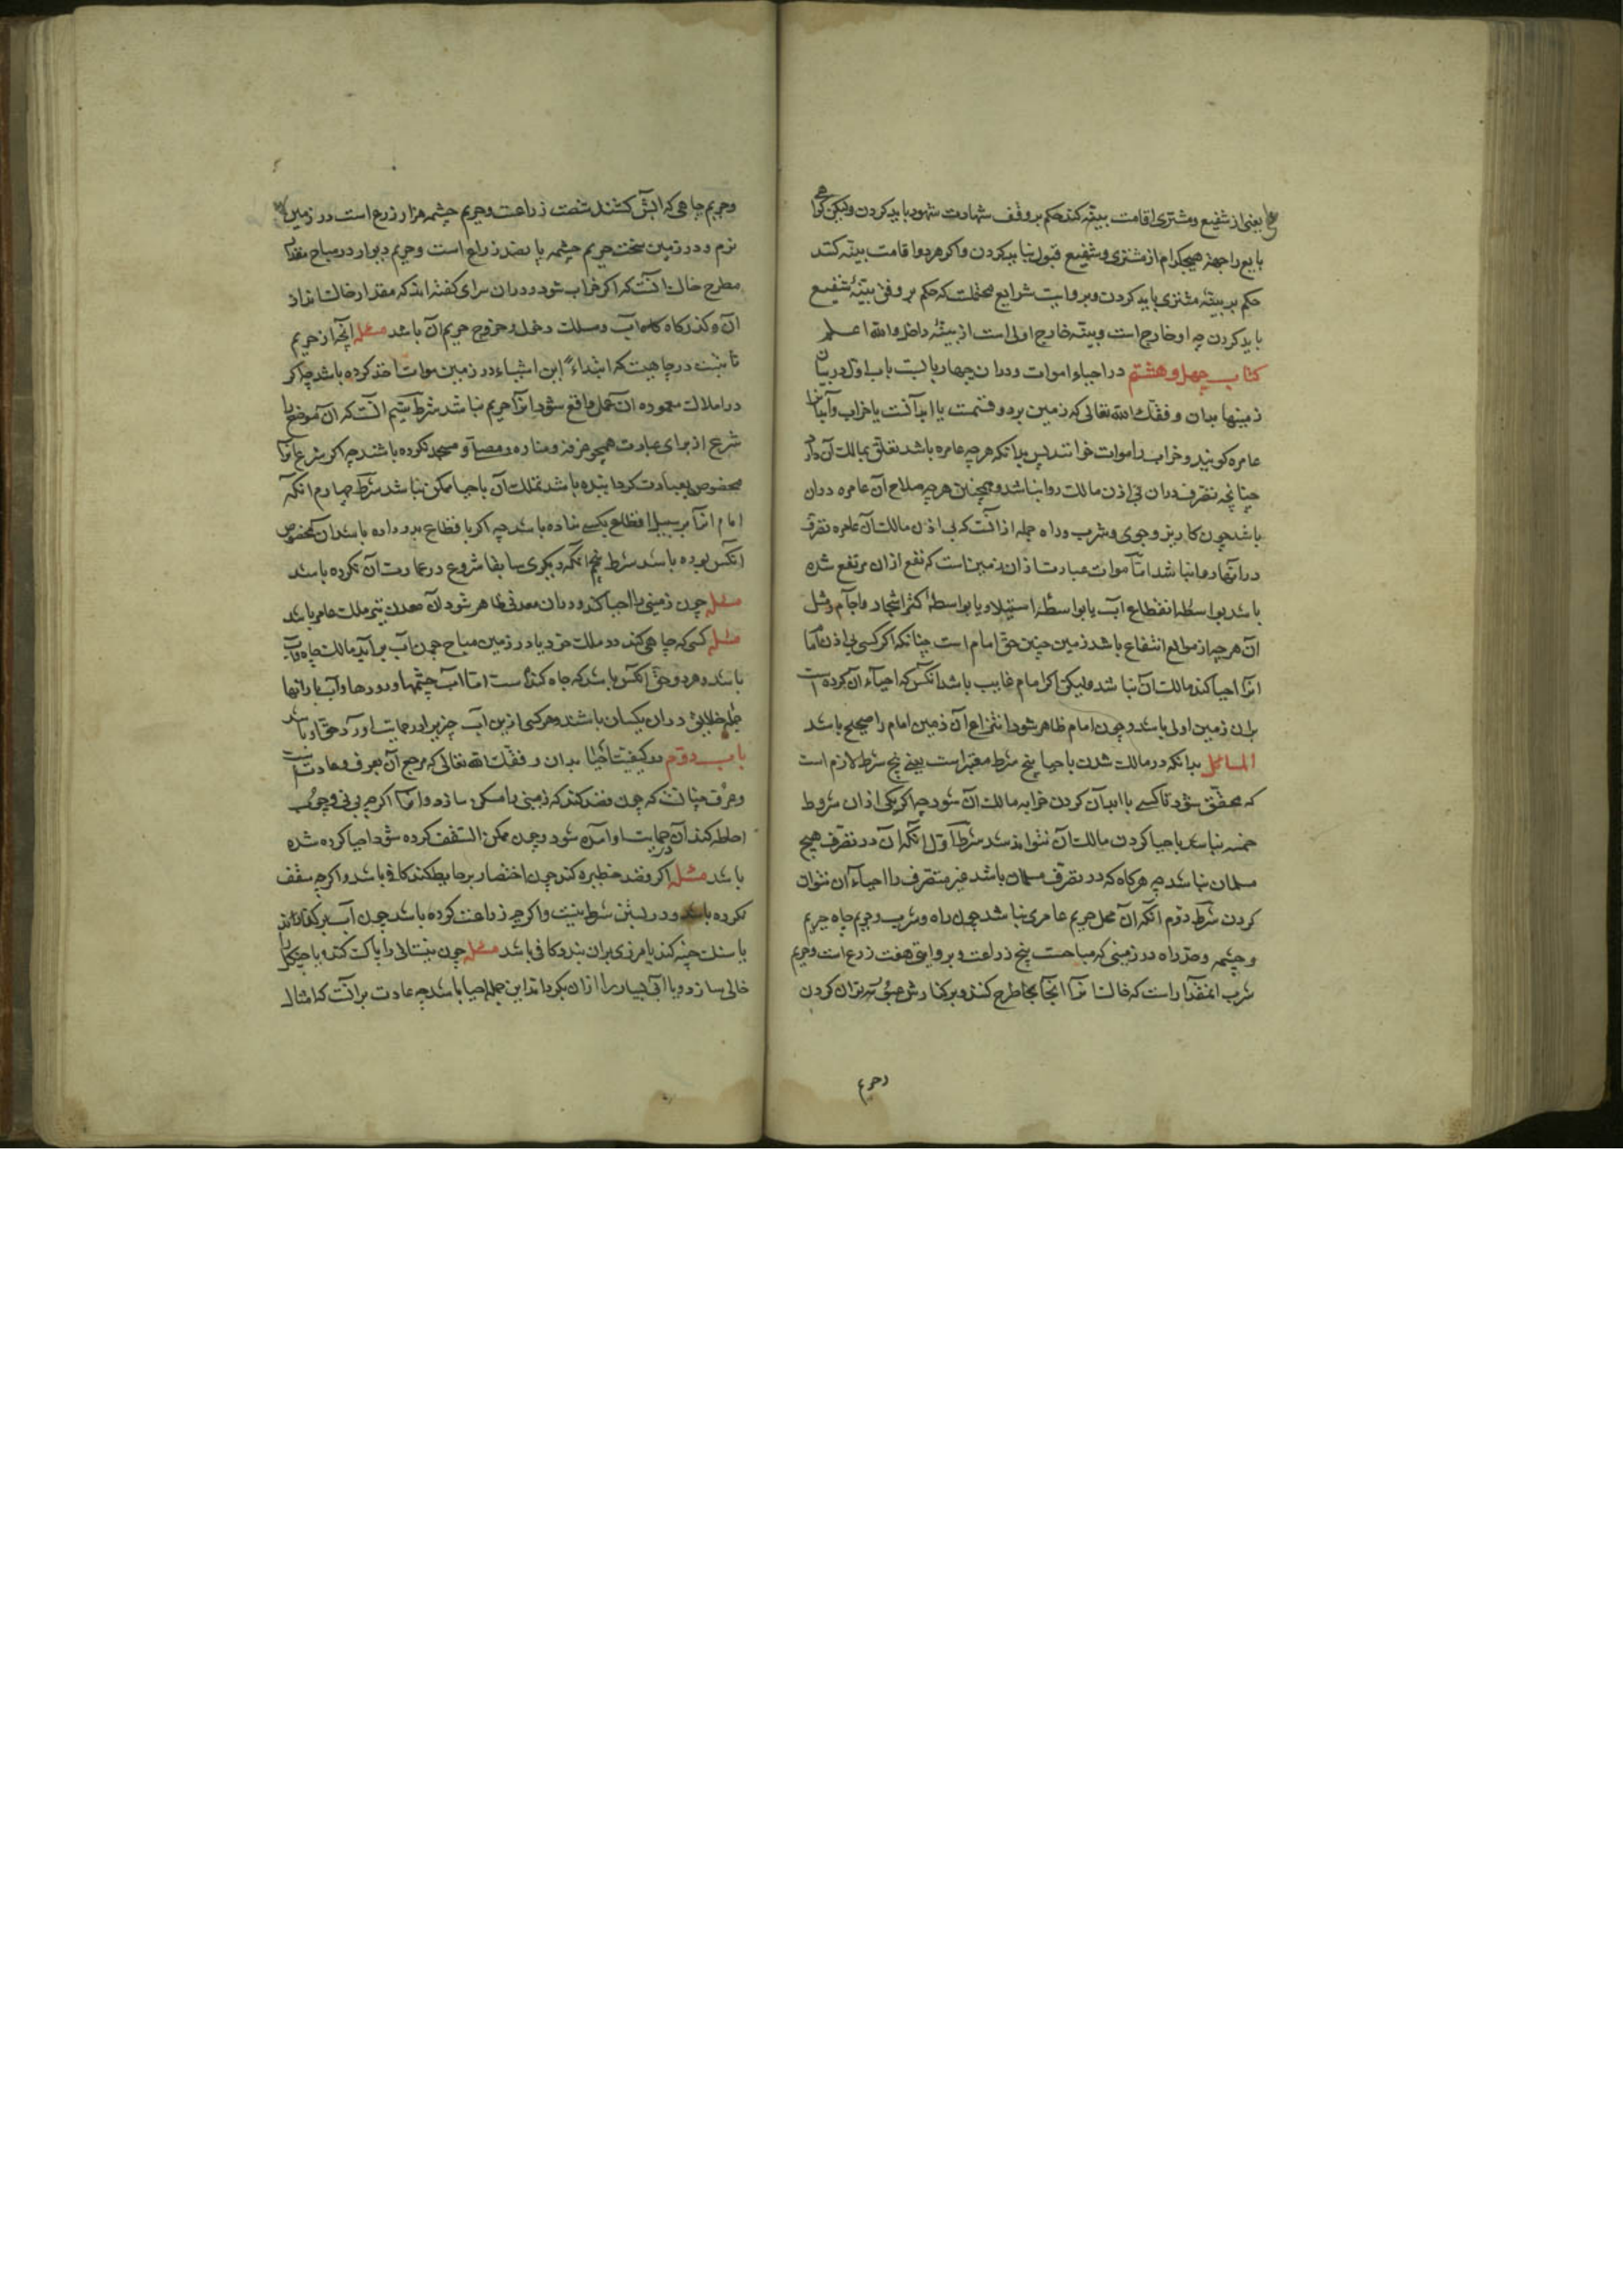 یعنی از شفیع و مشتری اقامت بینه کند حکم بر وفق شهادت شهود باید کردن ولیکن گواهی
بایع را جهة هیچکدام از مشتری و شفیع قبول نباید کردن و اگر هر دو اقامت بینه کنند
حکم بر بینهٔ مشتری باید کردن و بروایت شرایع محتملست که حکم بر وفق بینهٔ شفیع
باید کردن چه او خارج است و بینه خارج اولی است از بینهٔ داخل والله اعلم
کتاب چهل و هشتم در احیاء اموات و دران چهار بابست باب اول در بیان
زمینها بدان وفقک الله تعالی که زمین بر دو قسمت یا ابدآنست یا خراب و آبدانرا
عامره گویند و خراب را موات خوانند پس بدانکه هر چه عامره باشد تعلق بمالک آن دارد
چنانچه تصرف دران بی اذن مالک روا نباشد و همچنین هر چه صلاح آن عامره دران
باشد چون کاریز و جوی و شرب و راه جمله ازانست که بی اذن مالک آن عامره تصرف
درانها روا نباشد اما موات عبارت ازان زمین است که نفع ازان مرتفع شده
باشد بواسطهٔ انقطاع آب یا بواسطهٔ استیلاء یا بواسطهٔ کثر اشجار و آجام و مثل
آن هر چه از موانع انتفاع باشد زمین چنین حق امام است چنانکه اگر کسی بی اذن امام
انرا احیا کند مالک آن نباشد ولیکن اگر امام غایب باشد انکس که احیاء آن کرده است
بران زمین اولی باشد و چون امام ظاهر شود انتزاع آن زمین امام را صحیح باشد
المسائل بدانکه در مالک شدن باحیا پنج شرط معتبر است یعنی پنج شرط لازم است
که محقق شود تا کسی باابدآن کردن خرابه مالک آن شود چه اگر یکی ازان شروط
خمسه نباشد باحیا کردن مالک آن نتواند شد شرط اول انکه آن در تصرف هیچ
مسلمان نباشد چه هرگاه که در تصرف مسلمان باشد غیر متصرف را احیاء آن نتوان
کردن شرط دوم انکه آن محل حریم عامری نباشد چون راه و شرب و حریم چاه حریم
و چشمه و حد راه در زمینی که مباحست پنج ذراعت و بروایتی هفت ذرع است و حریم
شرب انمقدار است که خاکش ترا آنجا طرح کنند و بر کنارش عبور توان کردن
و حریم
و حریم چاهی که ابش کشند شصت ذراعت و حریم چشمه هزار ذرع است در زمین
نرم و در زمین سخت حریم چشمه پانصد ذراع است و حریم دیوار در مباح مقدار
مطرح خاک انست که اگر خراب شود و دران سرای گفته اند که مقدار خاکانداز
آن و گذرگاه آب و مسلک دخول و خروج حریم آن باشد مسئله آنچه از حریم
ثابتست در جاهیست که ابتداءً این اشیاء در زمین موات اخذ کرده باشد چه اگر
در املاک معموره آن عمل واقع شود انرا حریم نباشد شرط سیم انست که آن موضع را
شرع از برای عبادت همچو عرفه و مناره و مصلی و مسجد نکرده باشند چه اگر شرع انرا
مخصوص بعبادت گردانیده باشد تملک آن باحیا ممکن نباشد شرط چهارم انکه
امام انرا بر سبیل اقطاع بکسی نداده باشد چه اگر باقطاع بدو داده باشد ان مخصوص
انکس بوده باشد شرط پنجم انکه دیگری سابقا شروع در عمارت آن نکرده باشد
مسئله چون زمینی را احیا کند و دران معدنی ظاهر شود آن معدن نیز ملک عامر باشد
مسئله کسی که چاهی کند در ملک خود یا در زمین مباح چون آب برآید مالک چاه و آب
باشد و هر دو حق انکس باشد که چاه کنده است اما آب چشمها و رودها و آب بارانها
جمله خلایق دران یکسان باشند و هر کسی ازین آب چیزی در حمایت اورد حق او باشد
باب دوم در کیفیت احیا بدان وفقک الله تعالی که مرجع آن بعرف و عادتست
و عرف چنانست که چون قصد کند که زمینی را مسکن سازد و انرا اگر چه بنی و چوب
احاطه کند آن در حمایت او آمده شود و چون ممکن السقف کرده شود احیا کرده شده
باشد مسئله اگر قصد حظیره کند چون اختصار بر حایط کند کافی باشد و اگر چه سقف
نکرده باشد و در بستن شرط نیست و اگر چه زراعت کرده باشد چون آب بر کنارانند
یا سنک چینه کند یا مرزی بران بندد کافی باشد مسئله چون نیستانی را پاک کند و باحیکار
خالی سازد و یا آبی بسیار را ازان بگرداند این جمله احیا باشد چه عادت برانست که امثال